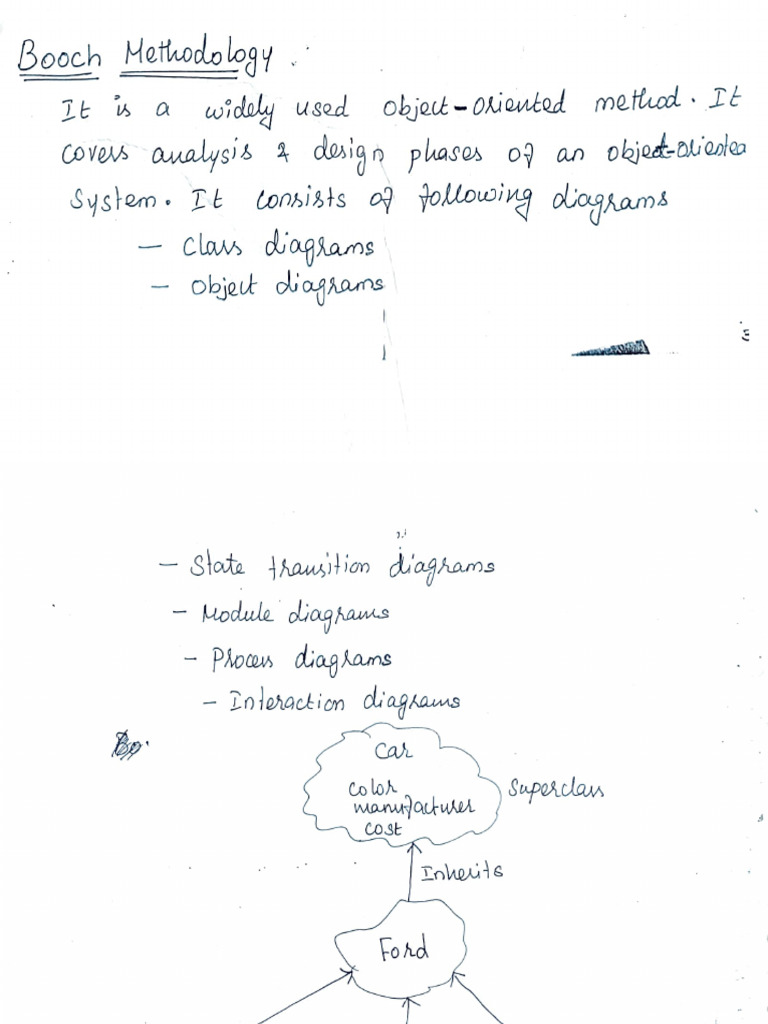 Booch Methodology.
It is a widely used object-oriented method. It
covers analysis & design phases of an object-oriented
System. It consists of following diagrams
- Class diagrams
- Object diagrams
- State transition diagrams
- Module diagrams
- Process diagrams
- Interaction diagrams
Car
color
manufacturer
cost
Superclass
Inherits
Ford